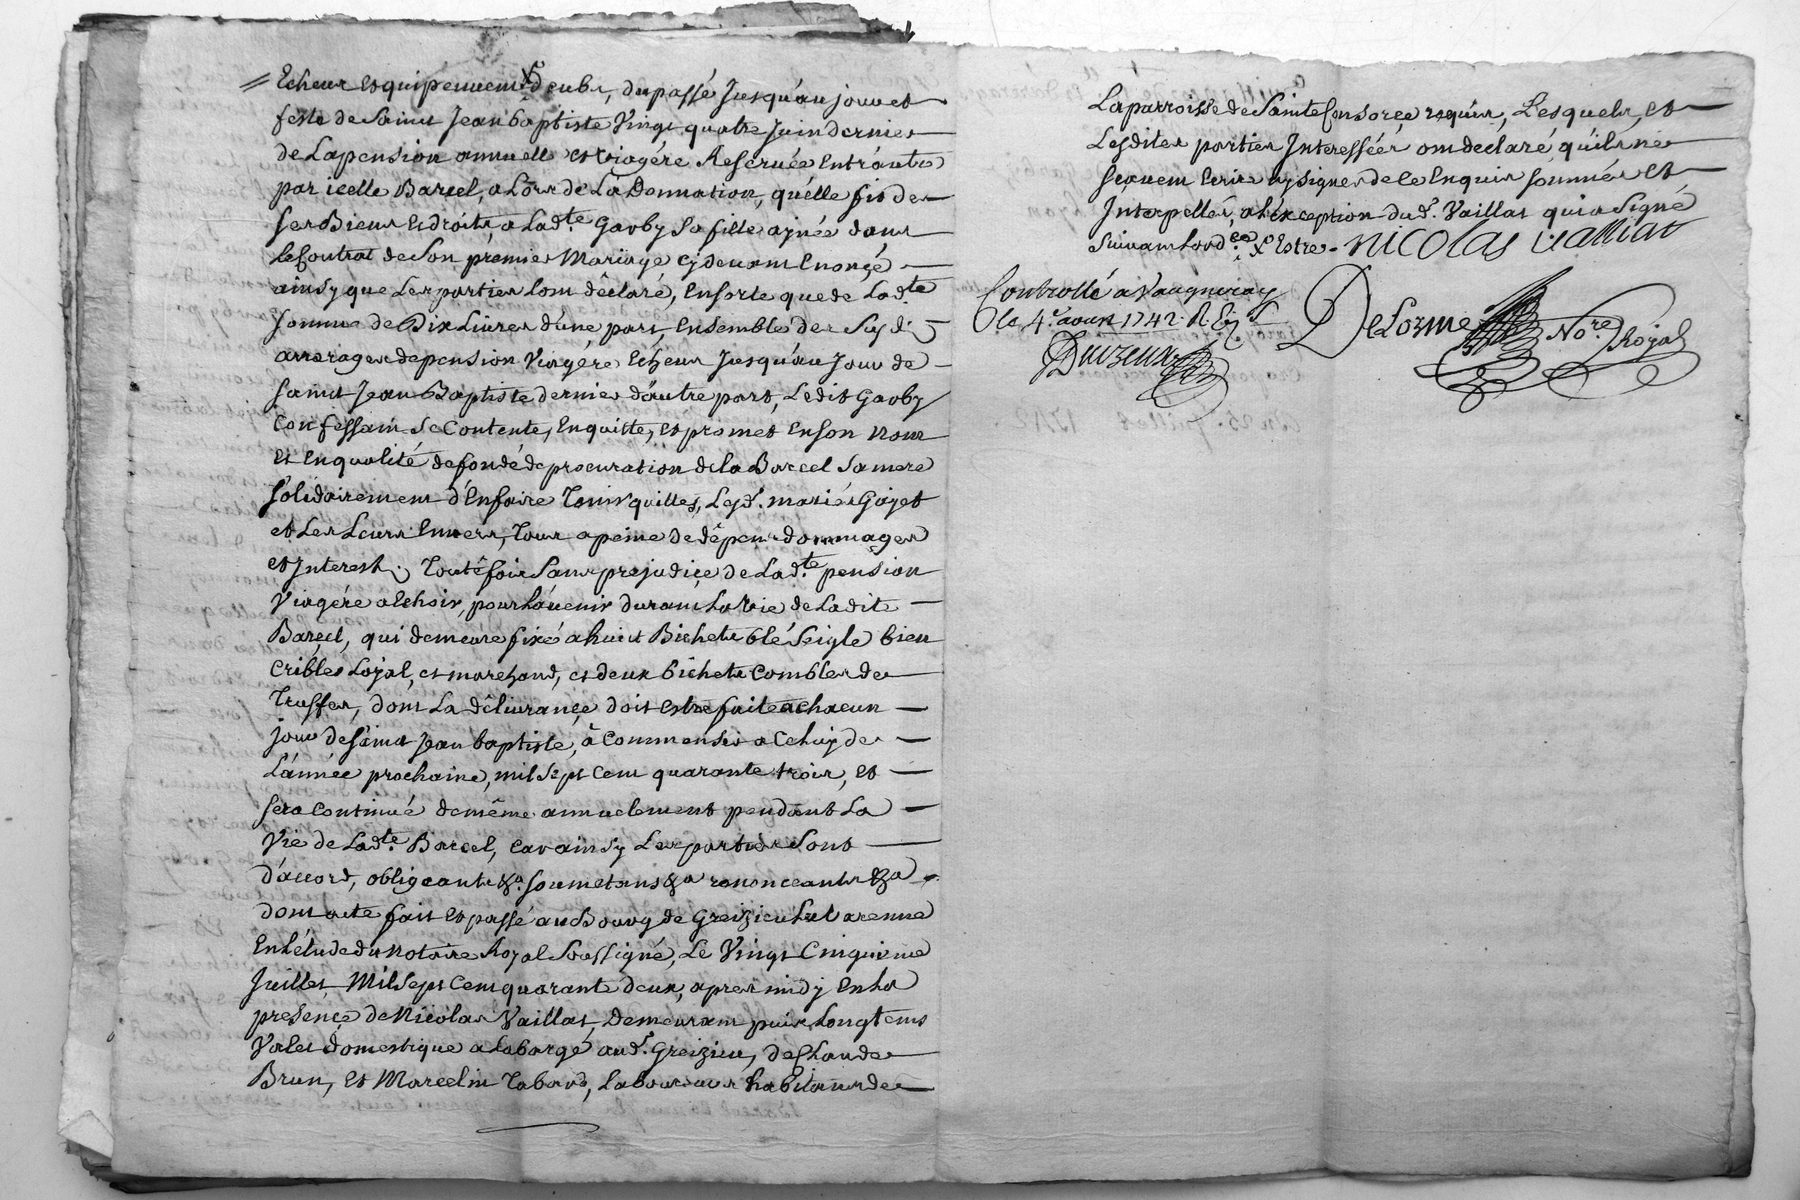 Echeus et qui peuvent être deubs, du passé Jusqu'au jour et
feste de Saint Jean baptiste Vingt quatre Juin dernier
de La pension annuelle et viagére Reservée entr'autre
par icelle Barcel, a Lors de La Donnation, qu'elle fit de
ses Biens et droits, a Lad.te Garby Sa fille ajnée dans
le Contrat de Son premier Mariage cy devant Enonçé
ainsy que Les parties L'ont déclaré, Ensorte que de Lad.te
somme de Dix Livres d'une part, Ensemble des Susd.
arrerages de pension Viagére Echeus Jusqu'au Jour de
Saint Jean Baptiste dernier d'autre part, Ledit Garby
Confessant Se Contente, En quitte, et promet en son Nom
et En qualité de fondé de procuration de la Barcel Sa mere
solidairement d'En faire Tenir quittes, Lesd. mariés Gojet
et Les Leurs Envers, tous a peine de dépens dommages
et Interest. Toutéfois Sans prejudiçe de Lad.te pension
Viagére a Echoir, pour L'avenir durant La Vie de Ladite
Barcel, qui demeure fixée a huict Bichets blé Seigle bien
Criblé Lojal, et marchand, et deux bichets Combles de
Truffes, dont La délivrançe doit estre faite a chacun
jour de Saint Jean baptiste, à Commenser a Celuy de
L'année prochaine, mil Sept Cent quarante trois, et
sera Continué de même annuelement pendant La
Vie de Lad.te Barcel, Car ainsy Les parties Sont
d'accord, obligeants &a. Soumetans &a renonceants &a
dont acte fait et passé au Bourg de Greizieu La Varenne
En L'étude du Notaire Royal Soussigné, Le Vingt Cinquieme
Juillet, Mil Sept Cent quarante deux, apres midy En La
presençe de Nicolas Vaillat, Demeurant puis Longtems
Valet domestique a Labargé aud. Greizieu, de Claude
Brun, et Marcelin Tabard, Laboureurs habitants de
La parroisse de Sainte Consorçe requis, Lesquels, et
Lesdites parties Interesséés ont déclaré qu'ils ne
sçavent Ecrire ny signer de ce Enquis sommés et
Interpellés, a L'éxception dud. Vaillat qui a Signé
Suivant Lord.ce Estre. NICOLAS VALLIAT
Controllé a Vaugneray
le 4.e aoust 1742. R.
DeLorme No.re Royal